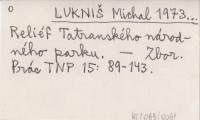 O
LUKNIŠ Michal 1973...
Reliéf Tatranského národ-
ného parku. — Zbor.
Prác TNP 15: 89-143.